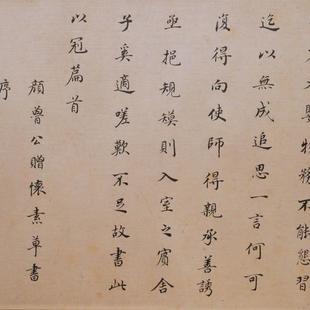 又嬰物務不能懇習
迄以無成追思一言何可
復得向使師得親承善誘
亟挹規模則入室之賓舍
子奚適嗟歎不足故書此
以冠篇首
顏魯公贈懷素草書
序